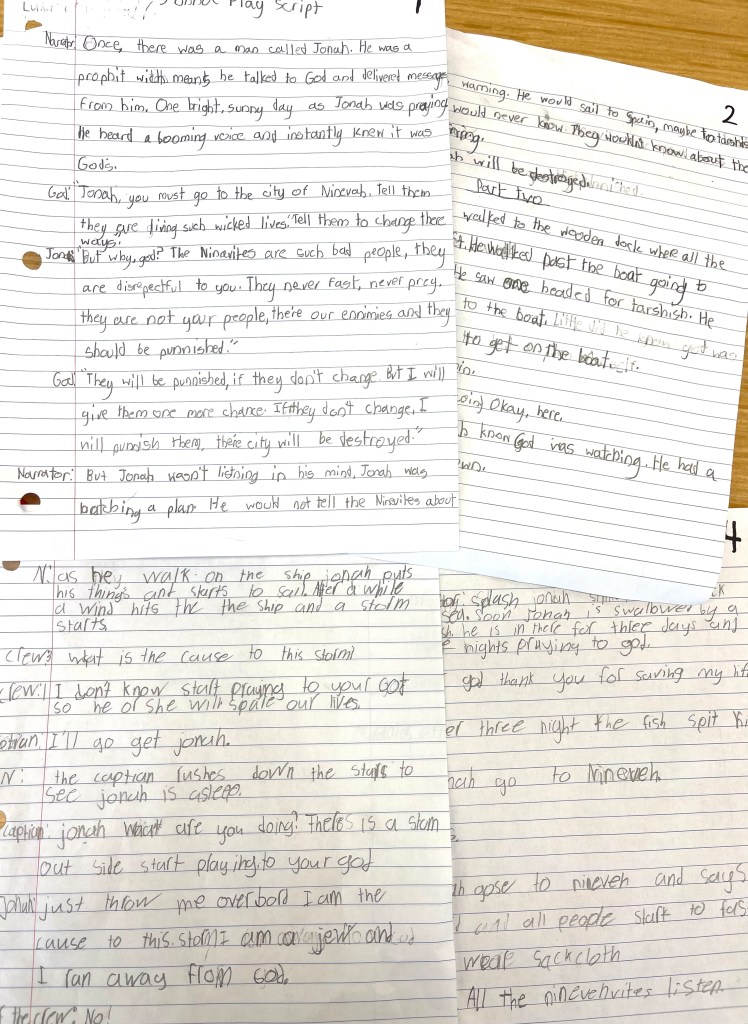 Play Script
1
Narrator: Once, there was a man called Jonah. He was a
prophit width means he talked to God and delivered message
from him. One bright, sunny day as Jonah was praying
He heard a booming voice and instantly knew it was
God's.
God: "Jonah, you must go to the city of Ninevah. Tell them
they are living such wicked lives. Tell them to change there
ways."
Jonah: "But why, god? The Ninavites are such bad people, they
are disrepectful to you. They never fast, never prey.
they are not your people, there our ennimies and they
should be punnished."
God: "They will be punnished, if they don't change. But I will
give them one more chance. If they don't change, I
will punnish them, there city will be destroyed."
Narrator: But Jonah wasn't listning in his mind, Jonah was
hatching a plan. He would not tell the Ninevites about
2
warning. He would sail to Spain, maybe to tarshis
would never know. They wouldn't know about the
will be destroyed.
Part two
walked to the wooden dock where all the
He walked past the boat going to
He saw one headed for tarshish. He
to the boat. Little did he know god was
to get on the boat
Okay, here.
know God was watching. He had a
N: as they walk on the ship jonah puts
his things and starts to sail. After a while
a wind hits the the ship and a storm
starts.
crew3 what is the cause to this storm?
crew:1 I don't know start praying to your God
so he or she will spare our lives.
I'll go get jonah.
N: the captian rushes down the stairs to
see jonah is asleep.
captian: jonah what are you doing? Theres is a storm
out side start praying to your god
Jonah: just throw me overbord I am the
cause to this storm I am a jew and
I ran away from God.
the crew: No!
4
splash jonah
soon Jonah is swallower by a
he is in there for three days and
nights praying to god.
god thank you for saving my lif
three night the fish spit
go to Nineveh.
gose to nineveh and says
all people start to fas
wear sackcloth
All the ninevehvites listen.